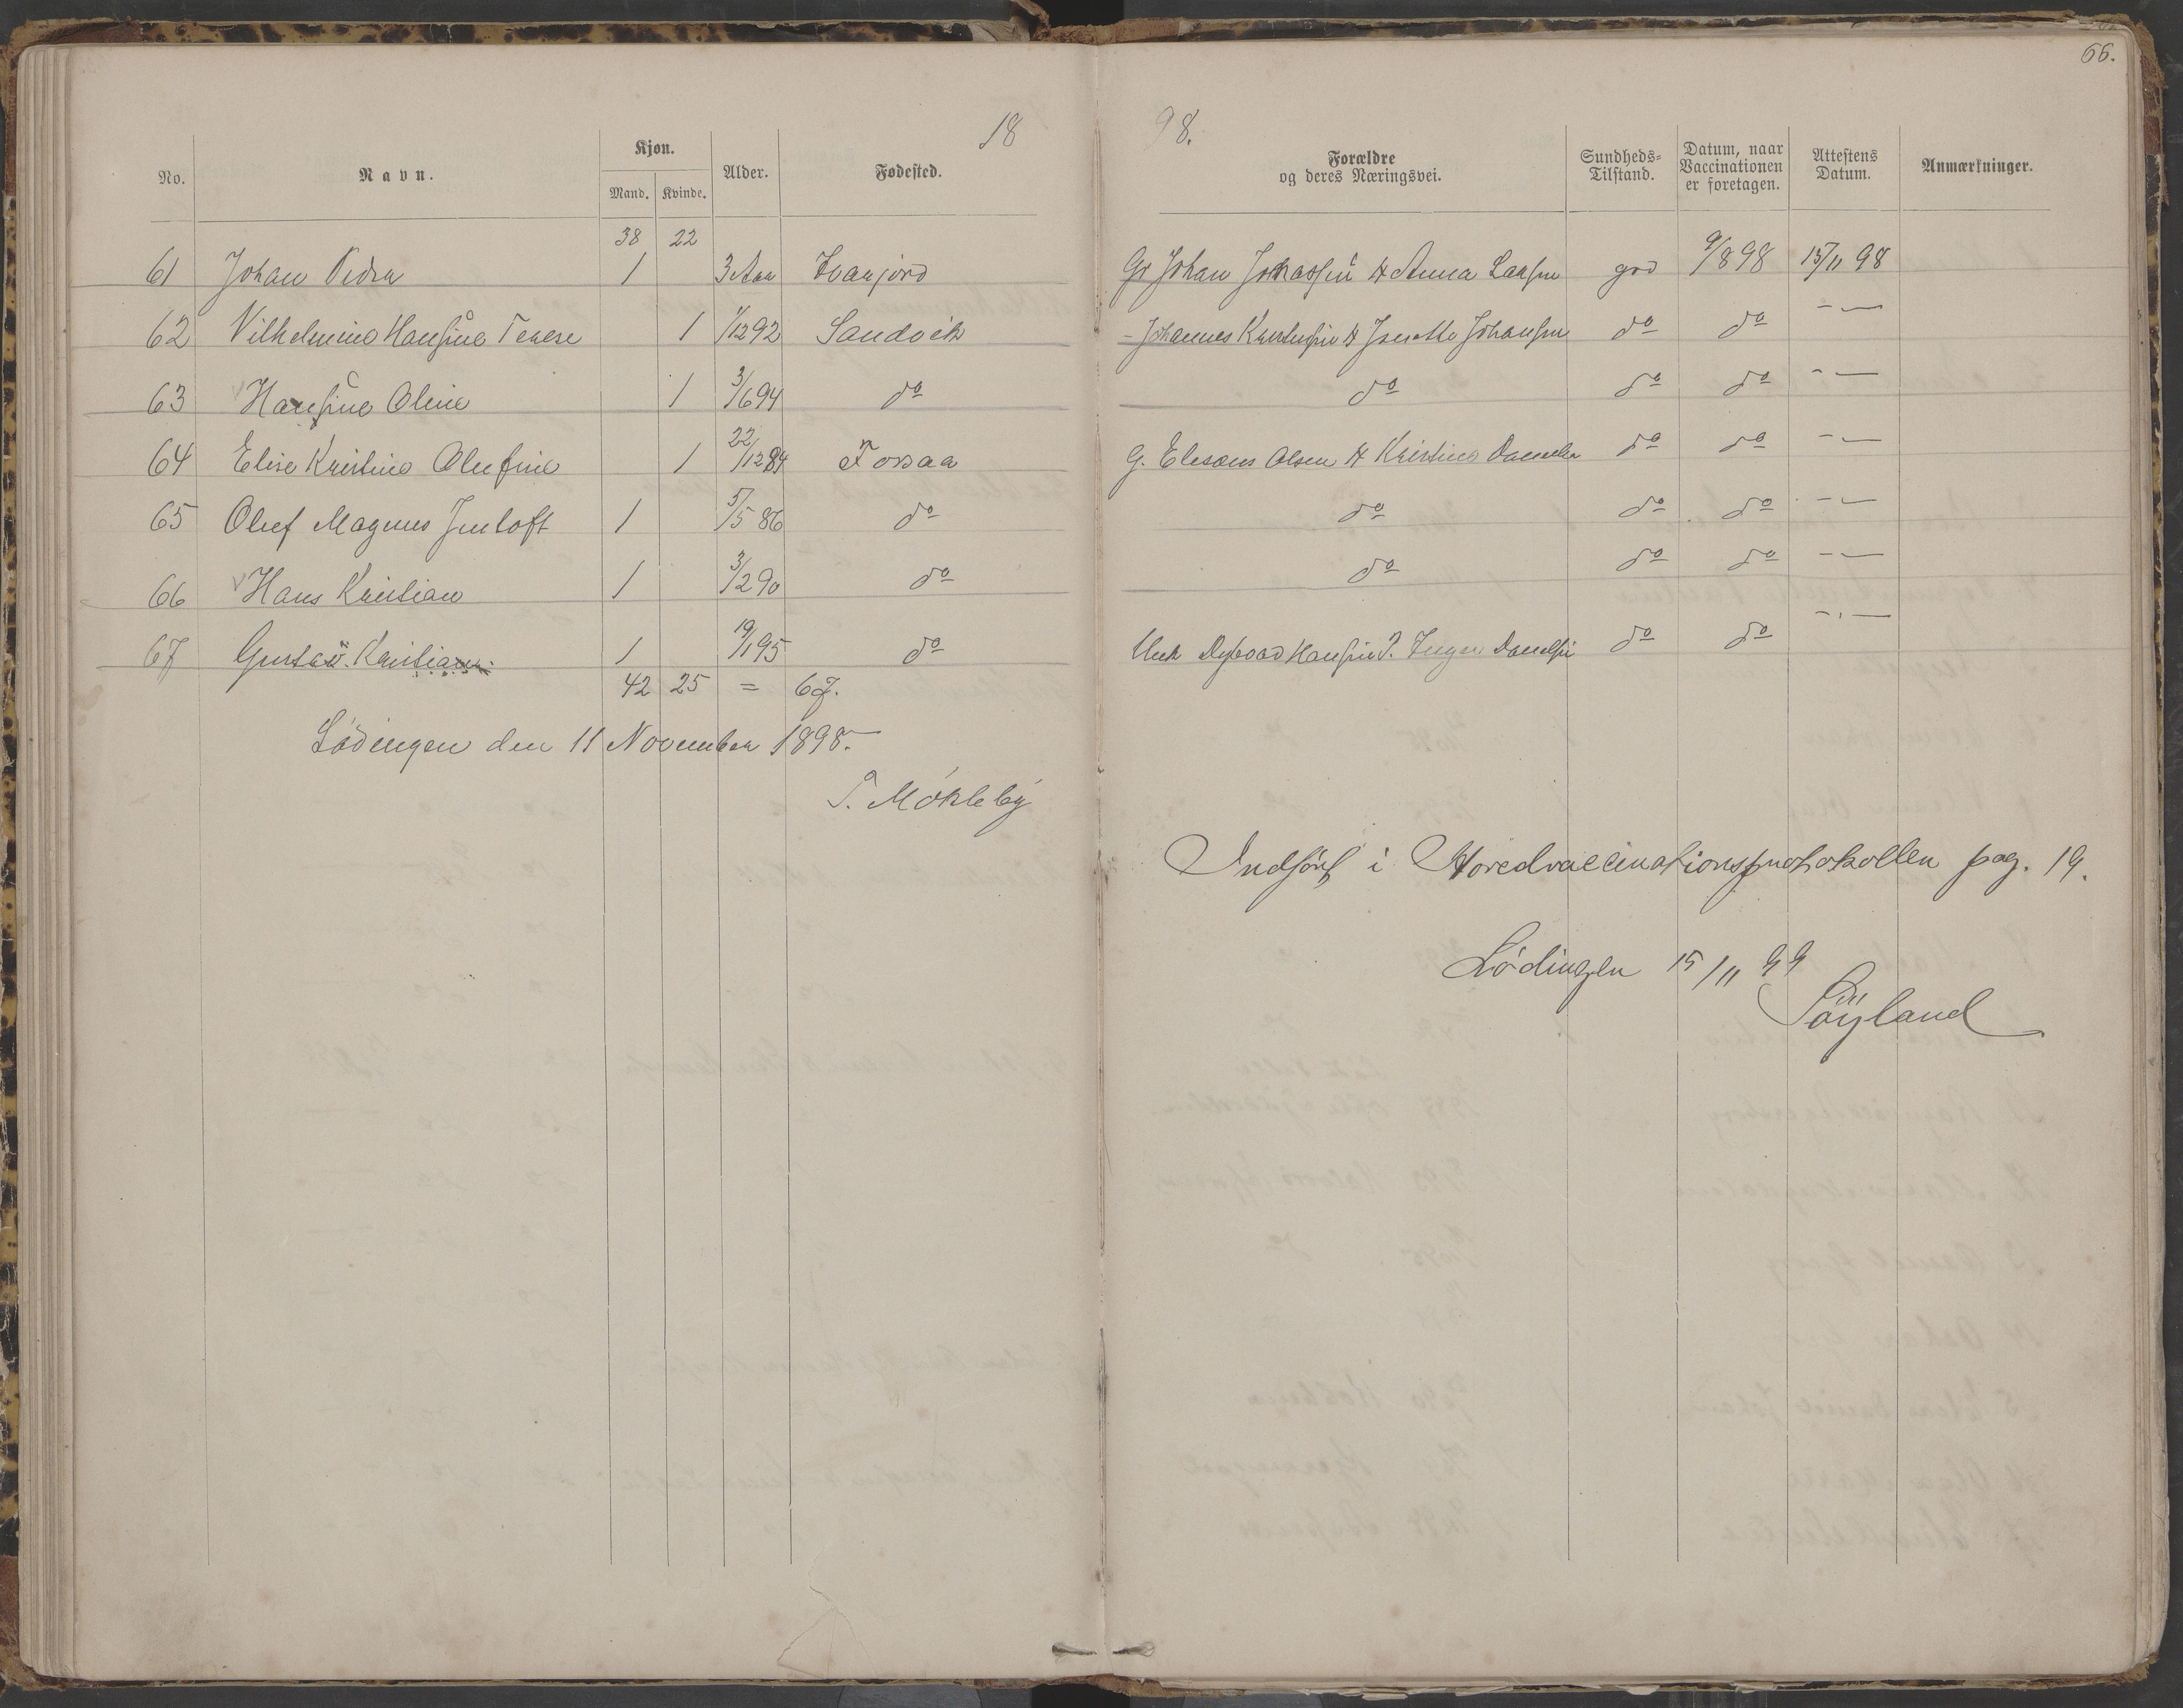 66.
1898.
No. Navn. Kjøn. Mand. Kvinde. Alder. Fødested. Forældre og deres Næringsvei. Sundheds-Tilstand. Datum, naar Vaccinationen er foretagen. Attestens Datum. Anmærkninger.
38 22
61 Johan Peder 1 3 Aar Gr Johan Johassen & Anna Laasen god 9/8 98 15/11 98
62 Vilhelmine Hansine Terese 1 1/12 92 Sandvik - Johannes & Johansen do do - —
63 Hansine Oline 1 3/6 94 do do do do - —
64 Elise Kristine Olufine 1 22/12 84 Fossaa G. Eliseus Olsen & Kristine do do - —
65 Oluf Magnus 1 5/5 86 do do do do - —
66 Hans Kristian 1 3/2 90 do do do do - —
67 Gustav Kristian 1 19/1 95 do Hansen P. Inger do do - —
42 25 = 67.
Lødingen den 11 November 1898.
P. Møkleby
Indført i Hovedvaccinationsprotokollen pag. 19.
Lødingen 15/11 99
Søyland